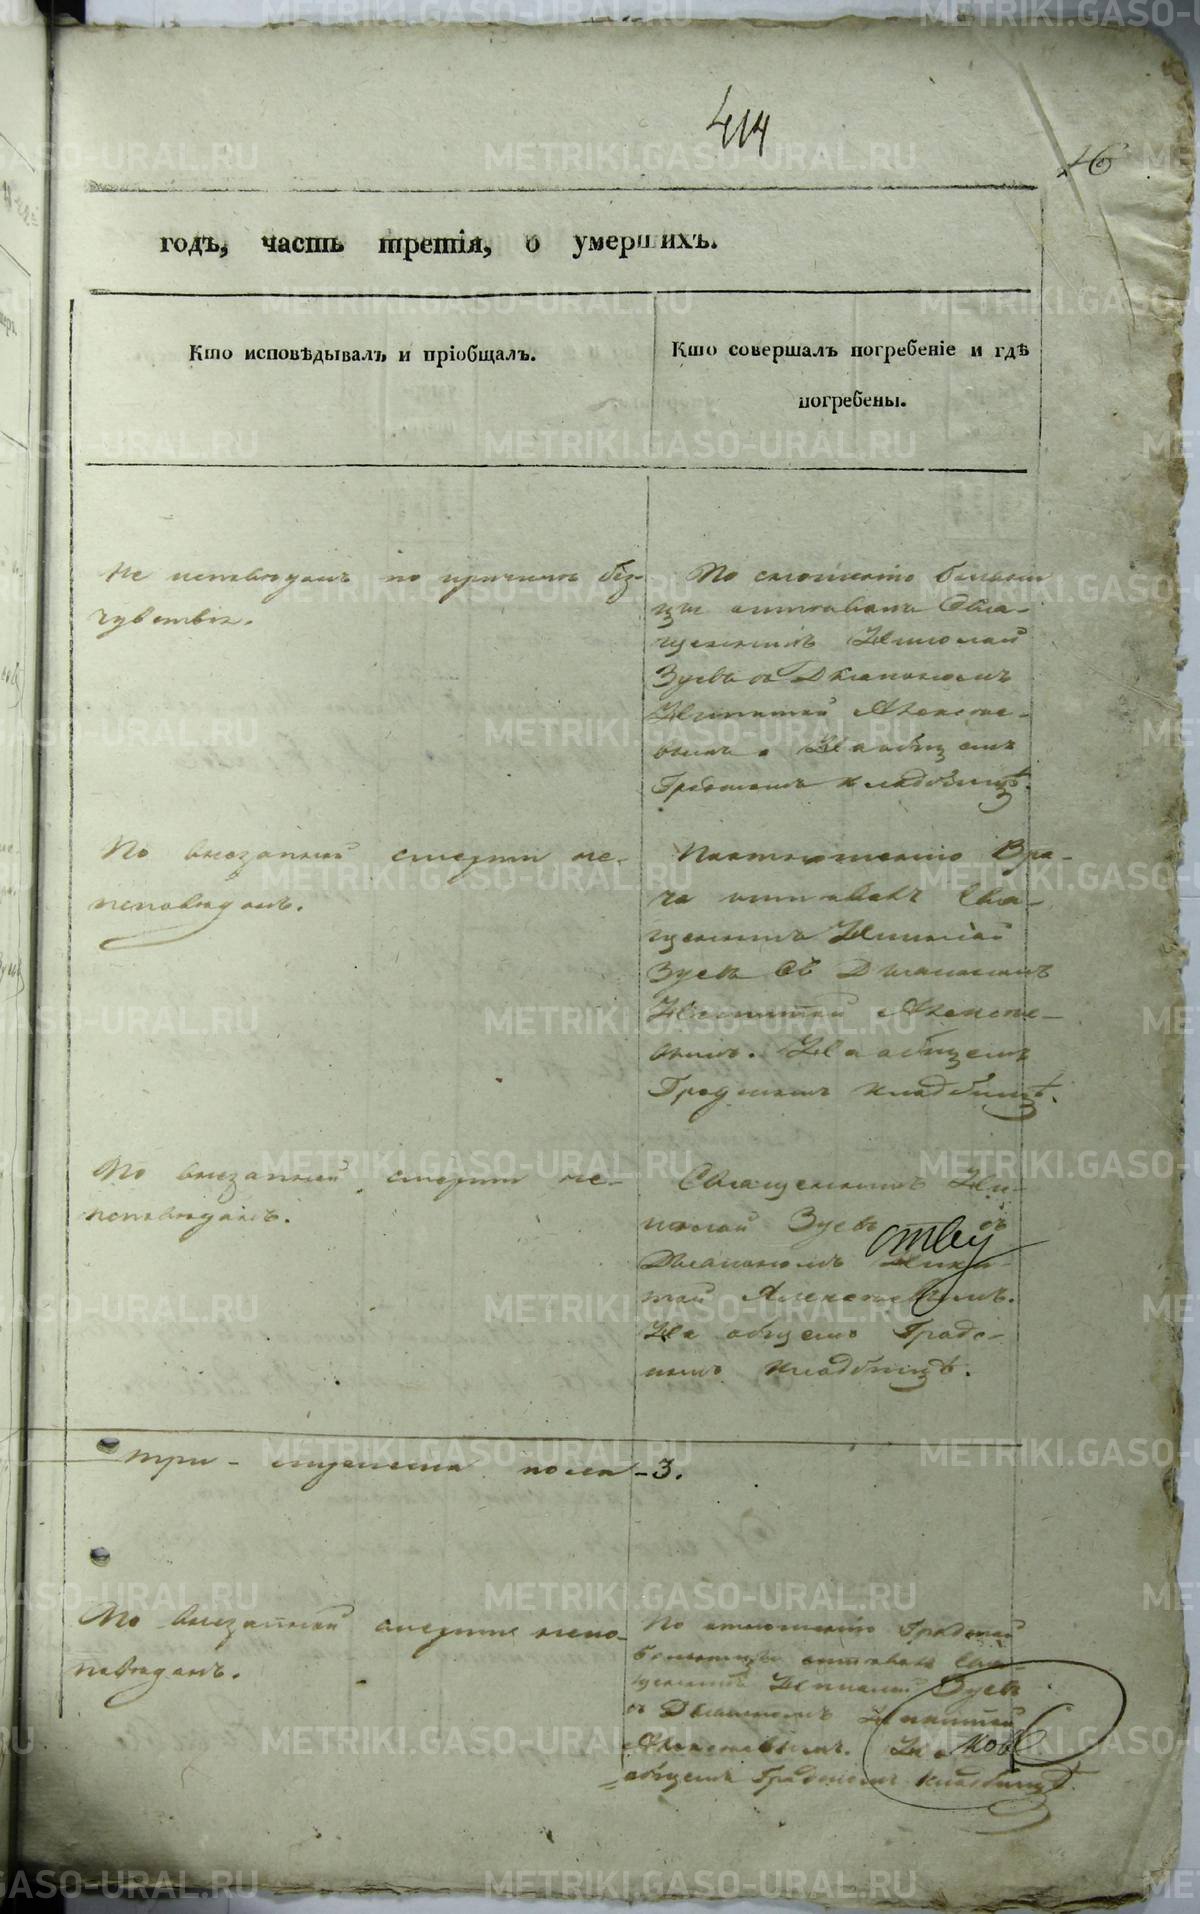 414
16
годъ, часть третія, о умершихъ.
Кто исповѣдывалъ и пріобщалъ.
Кто совершалъ погребеніе и гдѣ
погребены.
Не исповѣданъ по причинѣ без-
чувствія.
По сношенію больни
цы отпѣвалъ Свя-
щенникъ Николай
Зуевъ съ Діакономъ
Никитой Алексѣе-
вымъ. На общемъ
Градскомъ кладбищѣ.
По внезапной смерти не-
исповѣданъ.
По отношенію Вра-
ча отпѣвалъ Свя-
щенникъ Николай
Зуевъ Съ Діакономъ
Никитой Алексѣе-
вымъ. На общемъ
Градскомъ кладбищѣ.
По внезапной смерти не-
исповѣданъ.
Священникъ Ни-
колай Зуевъ съ
Діакономъ Ники-
той Алексѣевымъ.
На общемъ Градс-
комъ кладбищѣ.
три - мужеска пола - 3.
По внезапной смерти неис-
повѣданъ.
По отношенію Градской
больницы отпѣвалъ Свя-
щенникъ Николай Зуевъ
съ Діакономъ Никитой
Алексѣевымъ. На
общемъ Градскомъ кладбищѣ.
METRIKI.GASO-URAL.RU